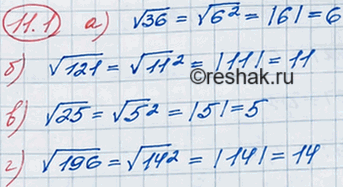 11.1 а) √36 = √6² = |6| = 6
б) √121 = √11² = |11| = 11
©reshak.ru
в) √25 = √5² = |5| = 5
г) √196 = √14² = |14| = 14